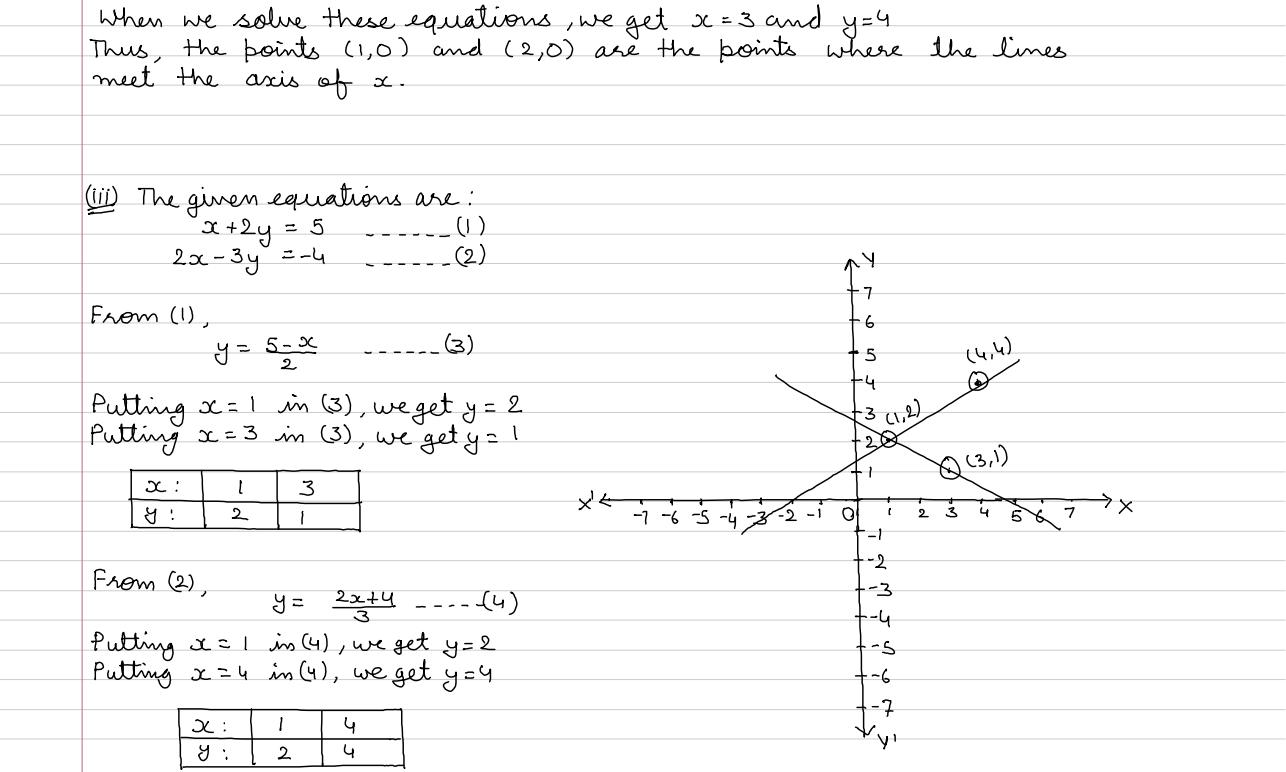 When we solve these equations, we get x = 3 and y=4
Thus, the points (1,0) and (2,0) are the points where the lines
meet the axis of x.
(iii) The given equations are:
x+2y = 5 ------(1)
2x-3y = -4 ------(2)
From (1),
y = 5-x/2 ------(3)
Putting x=1 in (3), we get y = 2
Putting x=3 in (3), we get y = 1
x : 1 3
y : 2 1
From (2),
y = 2x+4/3 -----(4)
Putting x = 1 in (4), we get y=2
Putting x = 4 in (4), we get y=4
x : 1 4
y : 2 4
Y
7
6
5
(4,4)
4
3 (1,2)
2
(3,1)
1
X' -7 -6 -5 -4 -3 -2 -1 0 1 2 3 4 5 6 7 X
-1
-2
-3
-4
-5
-6
-7
Y'